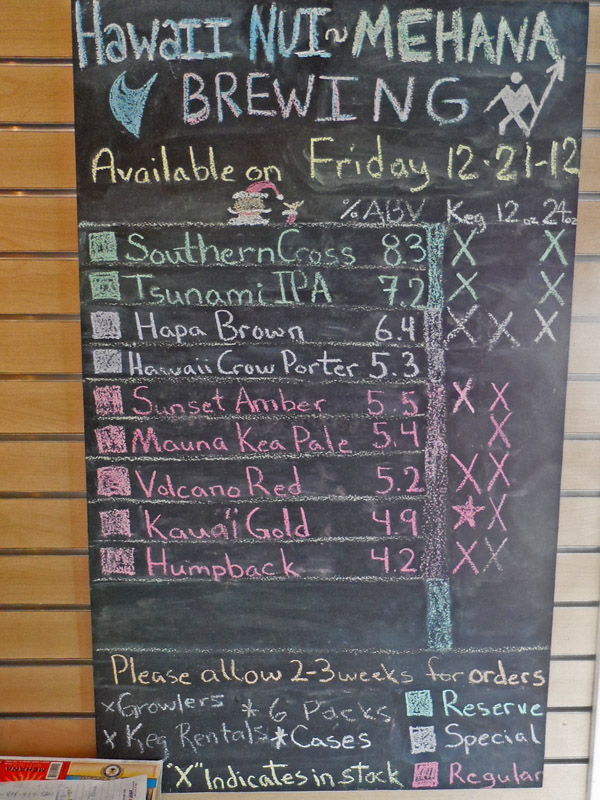 Hawaii Nui~MEHANA
BREWING
Available on Friday 12-21-12
%ABV Keg 12 oz 24 oz
Southern Cross 8.3 X X
Tsunami IPA 7.2 X X
Hapa Brown 6.4 X X X
Hawaii Crow Porter 5.3
Sunset Amber 5.5 X X
Mauna Kea Pale 5.4 X
Volcano Red 5.2 X X
Kaua'i Gold 4.9 ★ X
Humpback 4.2 X X
Please allow 2-3 weeks for orders
x Growlers * 6 Packs Reserve
x Keg Rentals * Cases Special
"X" Indicates in stock Regular
MEHANA